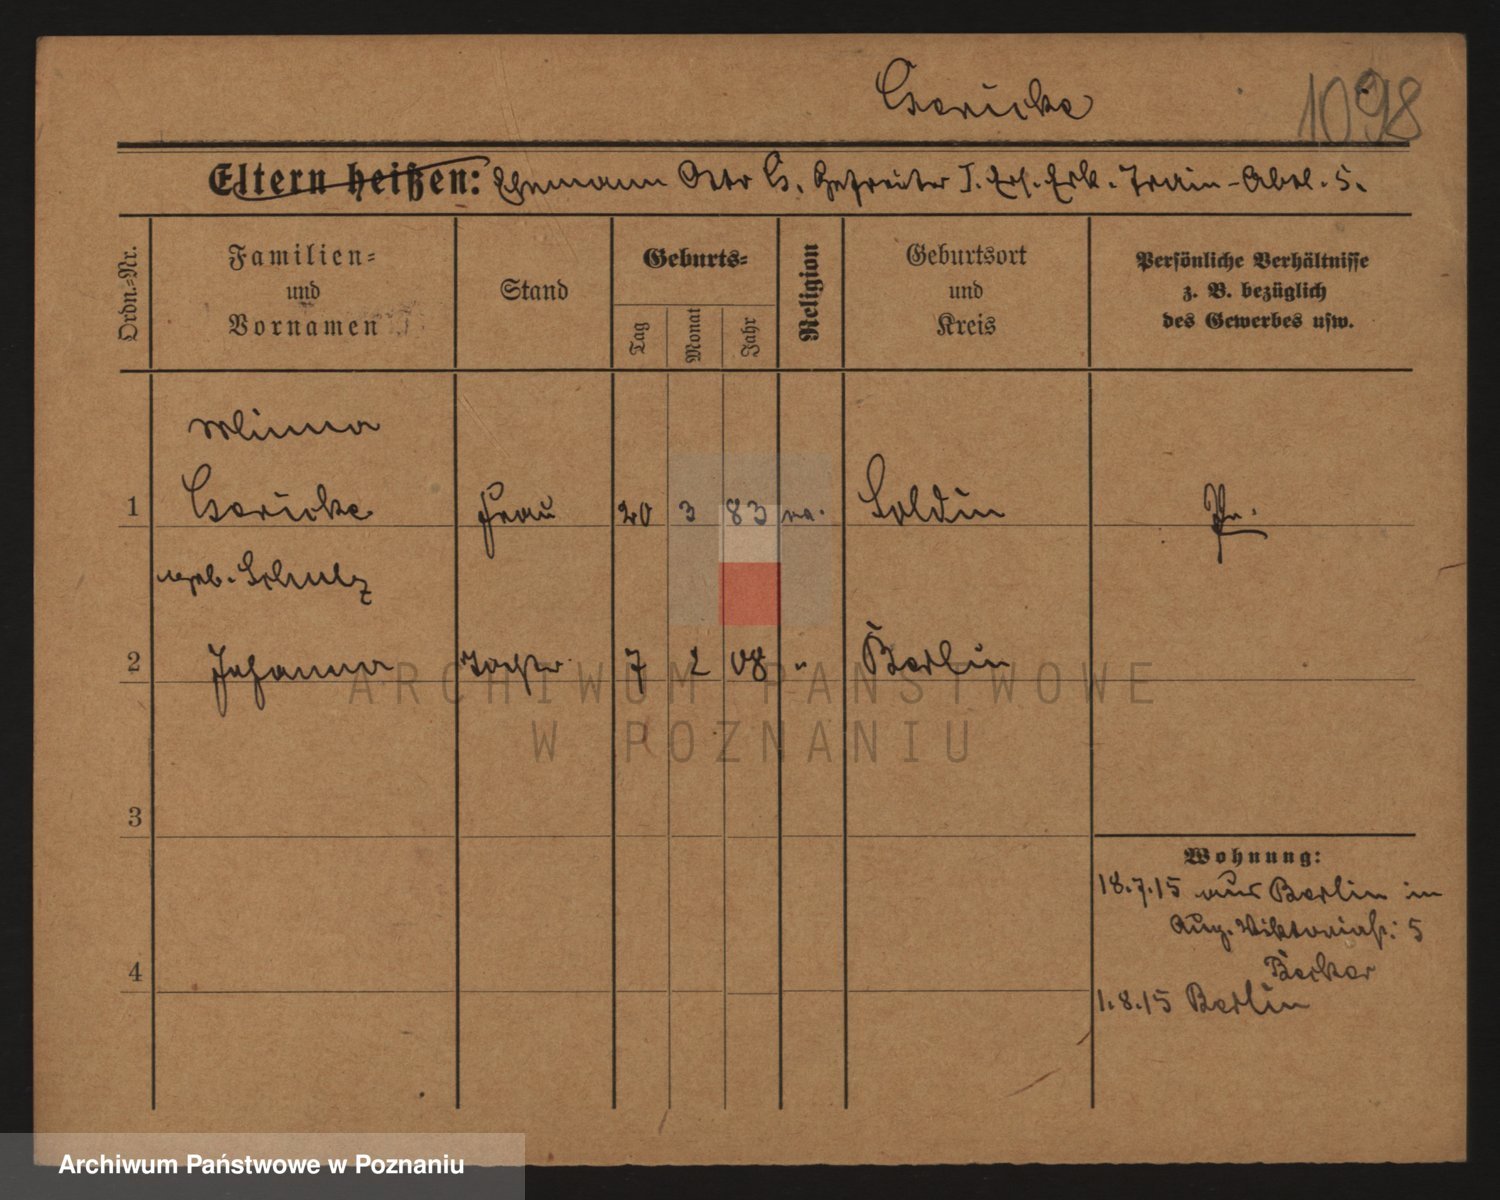 Gericke 1098
Eltern heißen: Ehemann Otto G. Gefreiter I. Ers. Esk. Train-Abtl. 5.
Ordn.-Nr.
Familien-
und
Vornamen
Stand
Geburts-
Tag
Monat
Jahr
Religion
Geburtsort
und
Kreis
Persönliche Verhältnisse
z. B. bezüglich
des Gewerbes usw.
Minna
1 Gericke Frau 20 3 83 ev. Soldin Pr.
geb. Schulz
2 Johanna Tochter 7 2 08 " Berlin
3
4
Wohnung:
18.7.15 aus Berlin in
Aug. Viktoriastr. 5
Becker
1.8.15 Berlin
ARCHIWUM PAŃSTWOWE
W POZNANIU
Archiwum Państwowe w Poznaniu